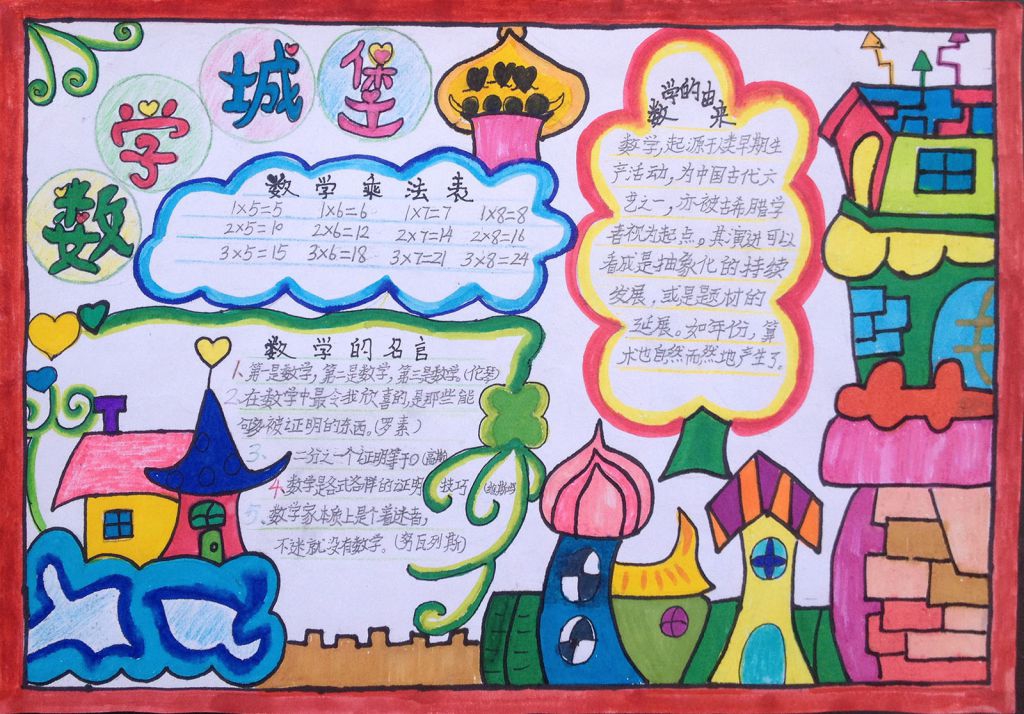 数学城堡
数学乘法表
1×5=5 1×6=6 1×7=7 1×8=8
2×5=10 2×6=12 2×7=14 2×8=16
3×5=15 3×6=18 3×7=21 3×8=24
数学的由来
数学,起源于人类早期生
产活动,为中国古代六
艺之一,亦被古希腊学
者视为起点。其演进可以
看成是抽象化的持续
发展,或是题材的
延展。如年份,算
术也自然而然地产生了。
数学的名言
1、第一是数学,第二是数学,第三是数学。(伦琴)
2、在数学中最令我欣喜的,是那些能
够被证明的东西。(罗素)
3、二分之一个证明等于0(高斯)
4、数学是各式各样的证明技巧
5、数学家本质上是个着迷者,
不迷就没有数学。(努瓦列斯)